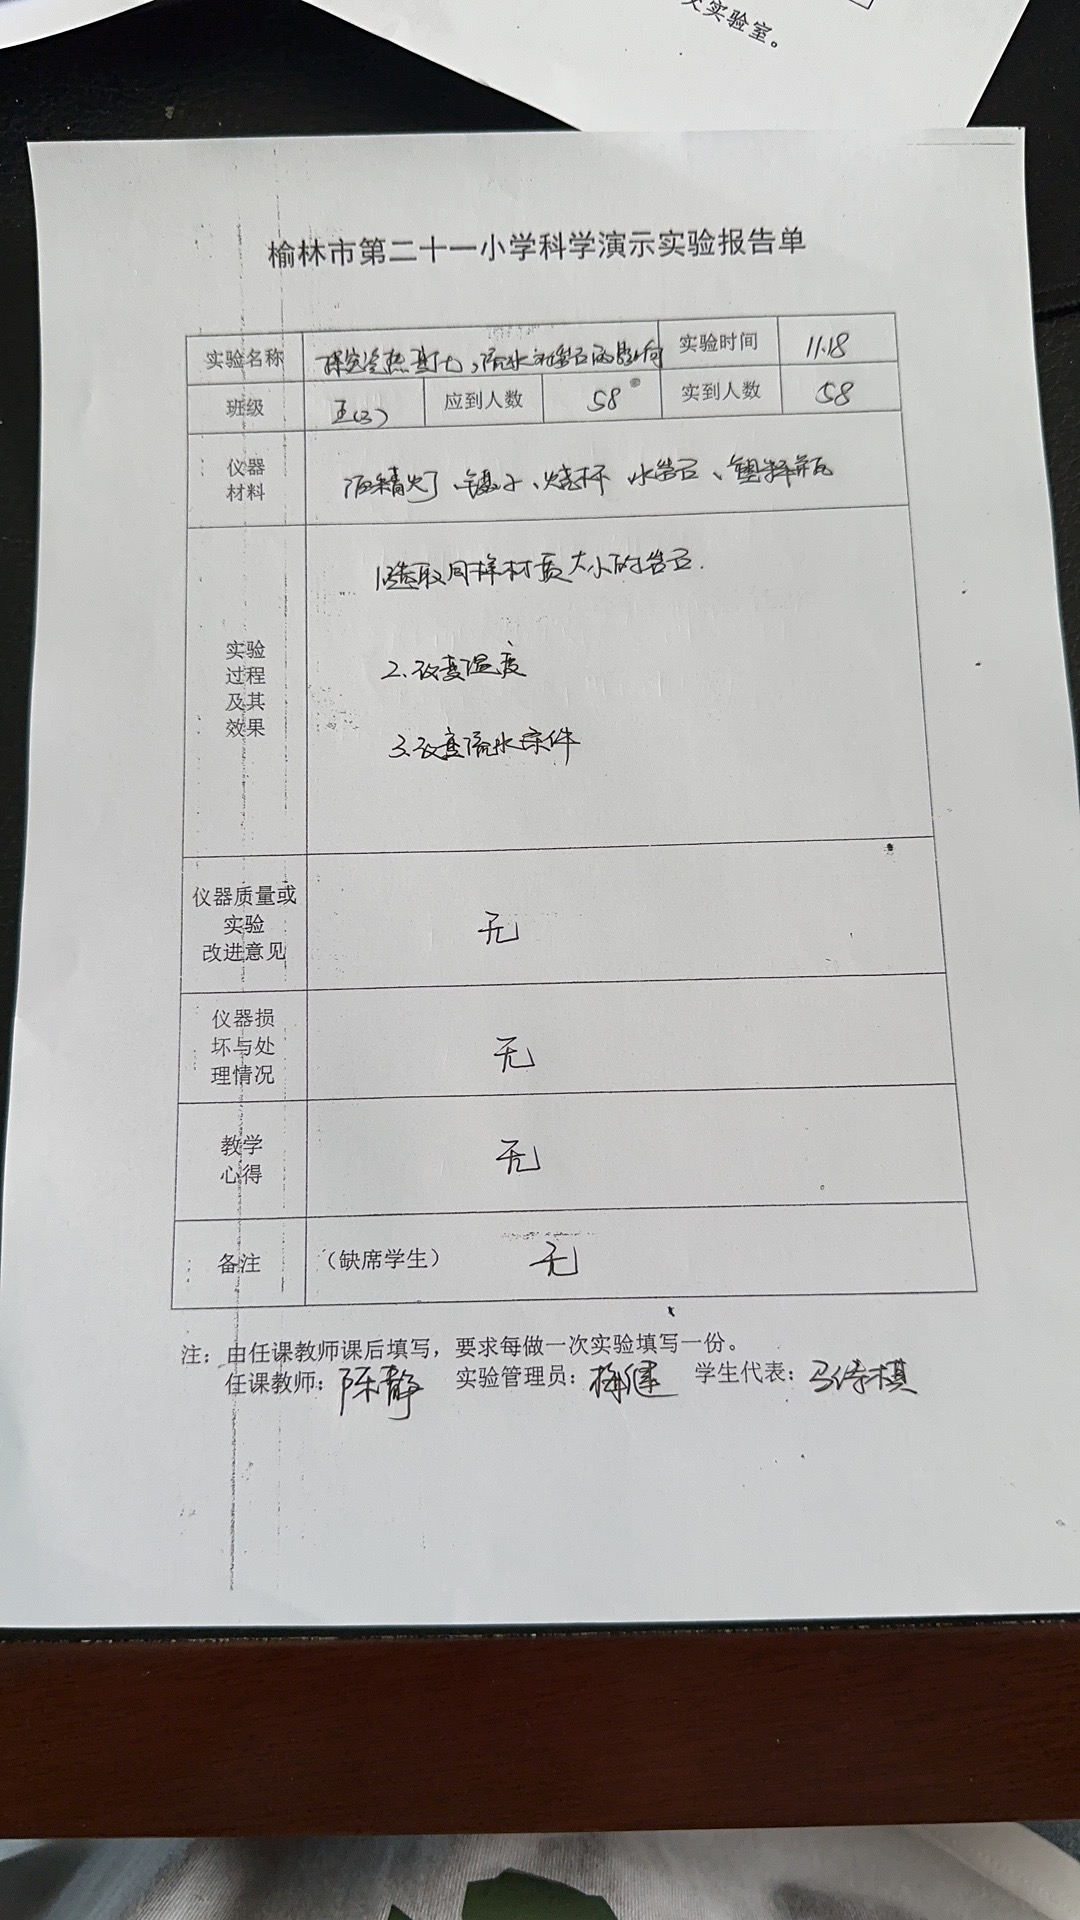 实验室。
榆林市第二十一小学科学演示实验报告单
实验名称 探究冷热变化、流水对岩石的影响 实验时间 11.18
班级 五(3) 应到人数 58 实到人数 58
仪器 材料 酒精灯、镊子、烧杯 水岩石、塑料瓶
实验
过程
及其
效果
1.选取同样材质大小的岩石.
2.改变温度
3.改变流水条件
仪器质量或
实验
改进意见
无
仪器损
坏与处
理情况
无
教学
心得
无
备注 （缺席学生） 无
注：由任课教师课后填写，要求每做一次实验填写一份。
任课教师：陈静 实验管理员： 学生代表：